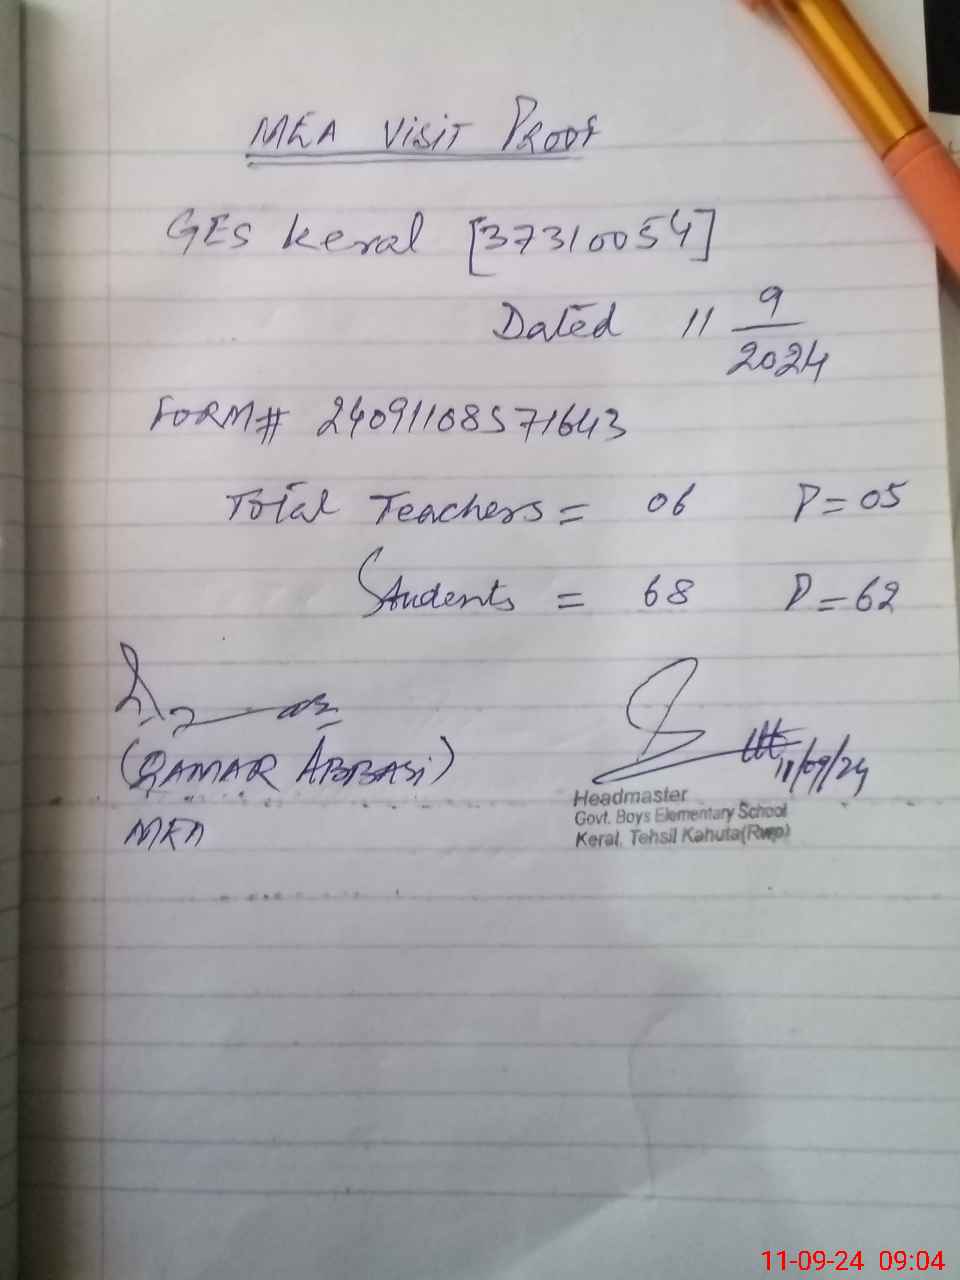 MEA Visit Proof
GES Keral [37310054]
Dated 11 9/2024
FORM# 24091108571643
Total Teachers = 06 P=05
Students = 68 P=62
(QAMAR ABBASi)
MEA
11/09/24
Headmaster
Govt. Boys Elementary School
Keral, Tehsil Kahuta(Rwp)
11-09-24 09:04